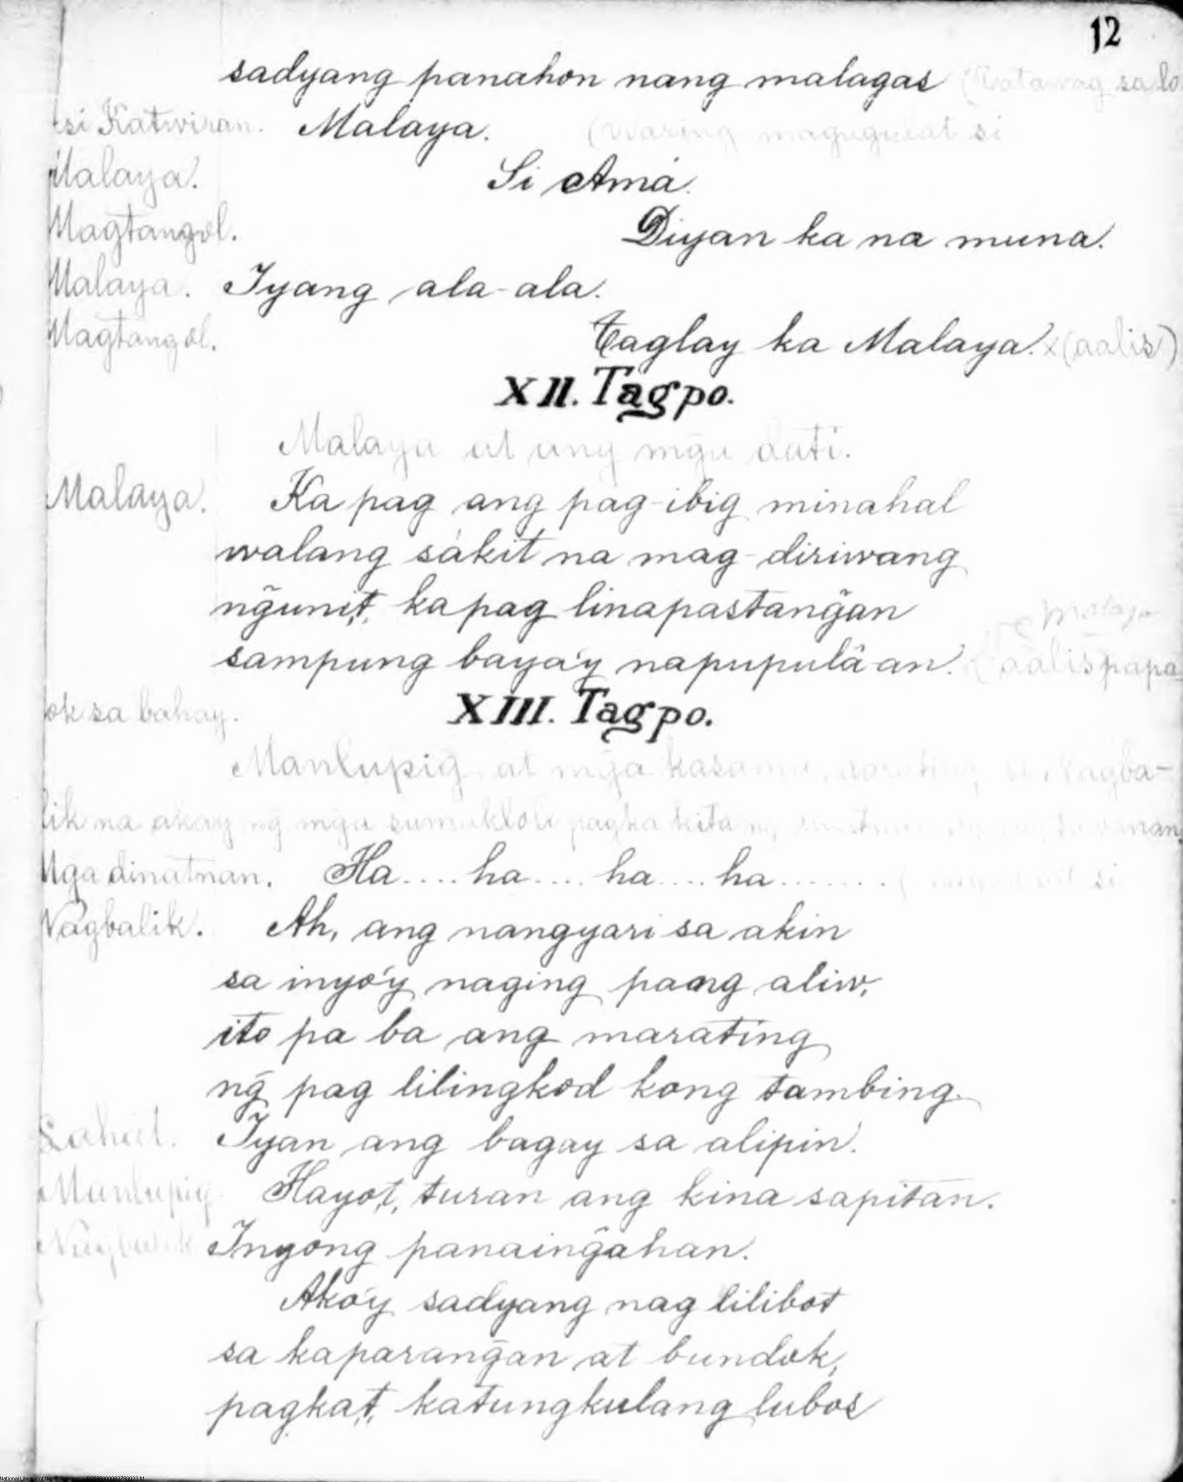 12
sadyang panahon nang malagas (Tatawag sa lo
si Katwiran. Malaya. (Waring magugulat si
Malaya. Si Amá.
Magtangol. Diyan ka na muna.
Malaya. Iyang ala-ala.
Magtangol. Taglay ka Malaya. x (aalis)
XII. Tagpo.
Malaya at ang mg̃a dati.
Malaya. Ka pag ang pag-ibig minahal
walang sákit na mag-diriwang
ng̃unit, ka pag linapastang̃an
sampung baya'y napupulâ-an. (aalis papa
ok sa bahay. XIII. Tagpo.
Manlupig at mg̃a kasama, si Nagba-
lik na akay ng̃ mg̃a sumuklolo pagka kita
Mg̃a dinatnan. Ha....ha....ha....ha....... ( si
Nagbalik. Ah, ang nangyari sa akin
sa inyo'y naging pang aliw,
ito pa ba ang marating
ng̃ pag lilingkod kong tambing.
Lahat. Iyan ang bagay sa alipin.
Manlupig. Hayo't, turan ang kina sapitan.
Nagbalik Inyong panaing̃ahan.
Ako'y sadyang nag lilibot
sa kaparang̃an at bundok,
pagka't, katungkulang lubos